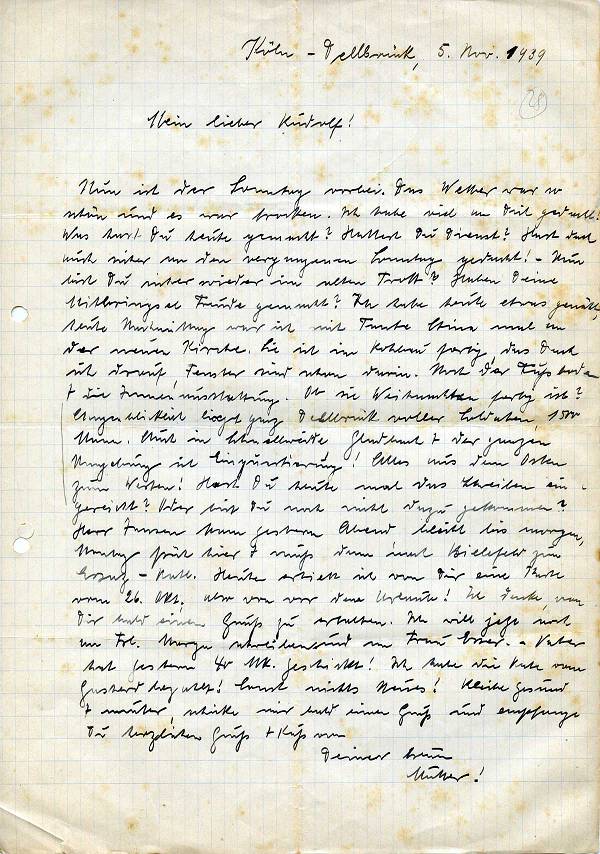 Köln - Dellbrück, 5. Nov. 1939
28
Mein lieber Rudolf!
Nun ist der Sonntag vorbei. Das Wetter war so
schön und es war trocken. Ich habe viel an Dich gedacht!
Was hast Du heute gemacht? Hattest Du Dienst? Hast doch
auch sicher an den vergangenen Sonntag gedacht! - Nun
bist Du sicher wieder im alten Trott? Haben Deine
Mitbringsel Freude gemacht? Ich habe heute etwas genäht,
heute Nachmittag war ich mit Tante Stina mal an
der neuen Kirche. Sie ist im Rohbau fertig, das Dach
ist drauf, Fenster sind schon darin. Noch der Fußboden
+ die Innenausstattung. Ob sie Weihnachten fertig ist?
Augenblicklich liegt ganz Dellbrück voller Soldaten, 1500
Mann. Auch in Schnellweide + der ganzen
Umgebung ist Einquartierung! Alles aus dem Osten
zum Westen! Hast Du heute mal das Schreiben ein-
gereicht? Oder bist Du noch nicht dazu gekommen?
Herr Jansen kam gestern Abend, bleibt bis morgen,
Montag früh hier + muß dann nach Bielefeld zum
Ersatz - Batl. Heute erhielt ich von Dir eine Karte
vom 26. Okt. also von vor dem Urlaub! Ich denke, von
Dir bald einen Gruß zu erhalten. Ich will jetzt noch
an Frl. schreiben und an Frau - Vater
hat gestern 40 Mk. geschickt! Ich habe die Rate vom
bezahlt! Sonst nichts Neues! Bleibe gesund
+ munter, schicke mir bald einen Gruß und empfange
Du herzlichen Gruß + Kuß von
Deiner treuen
Mutter!